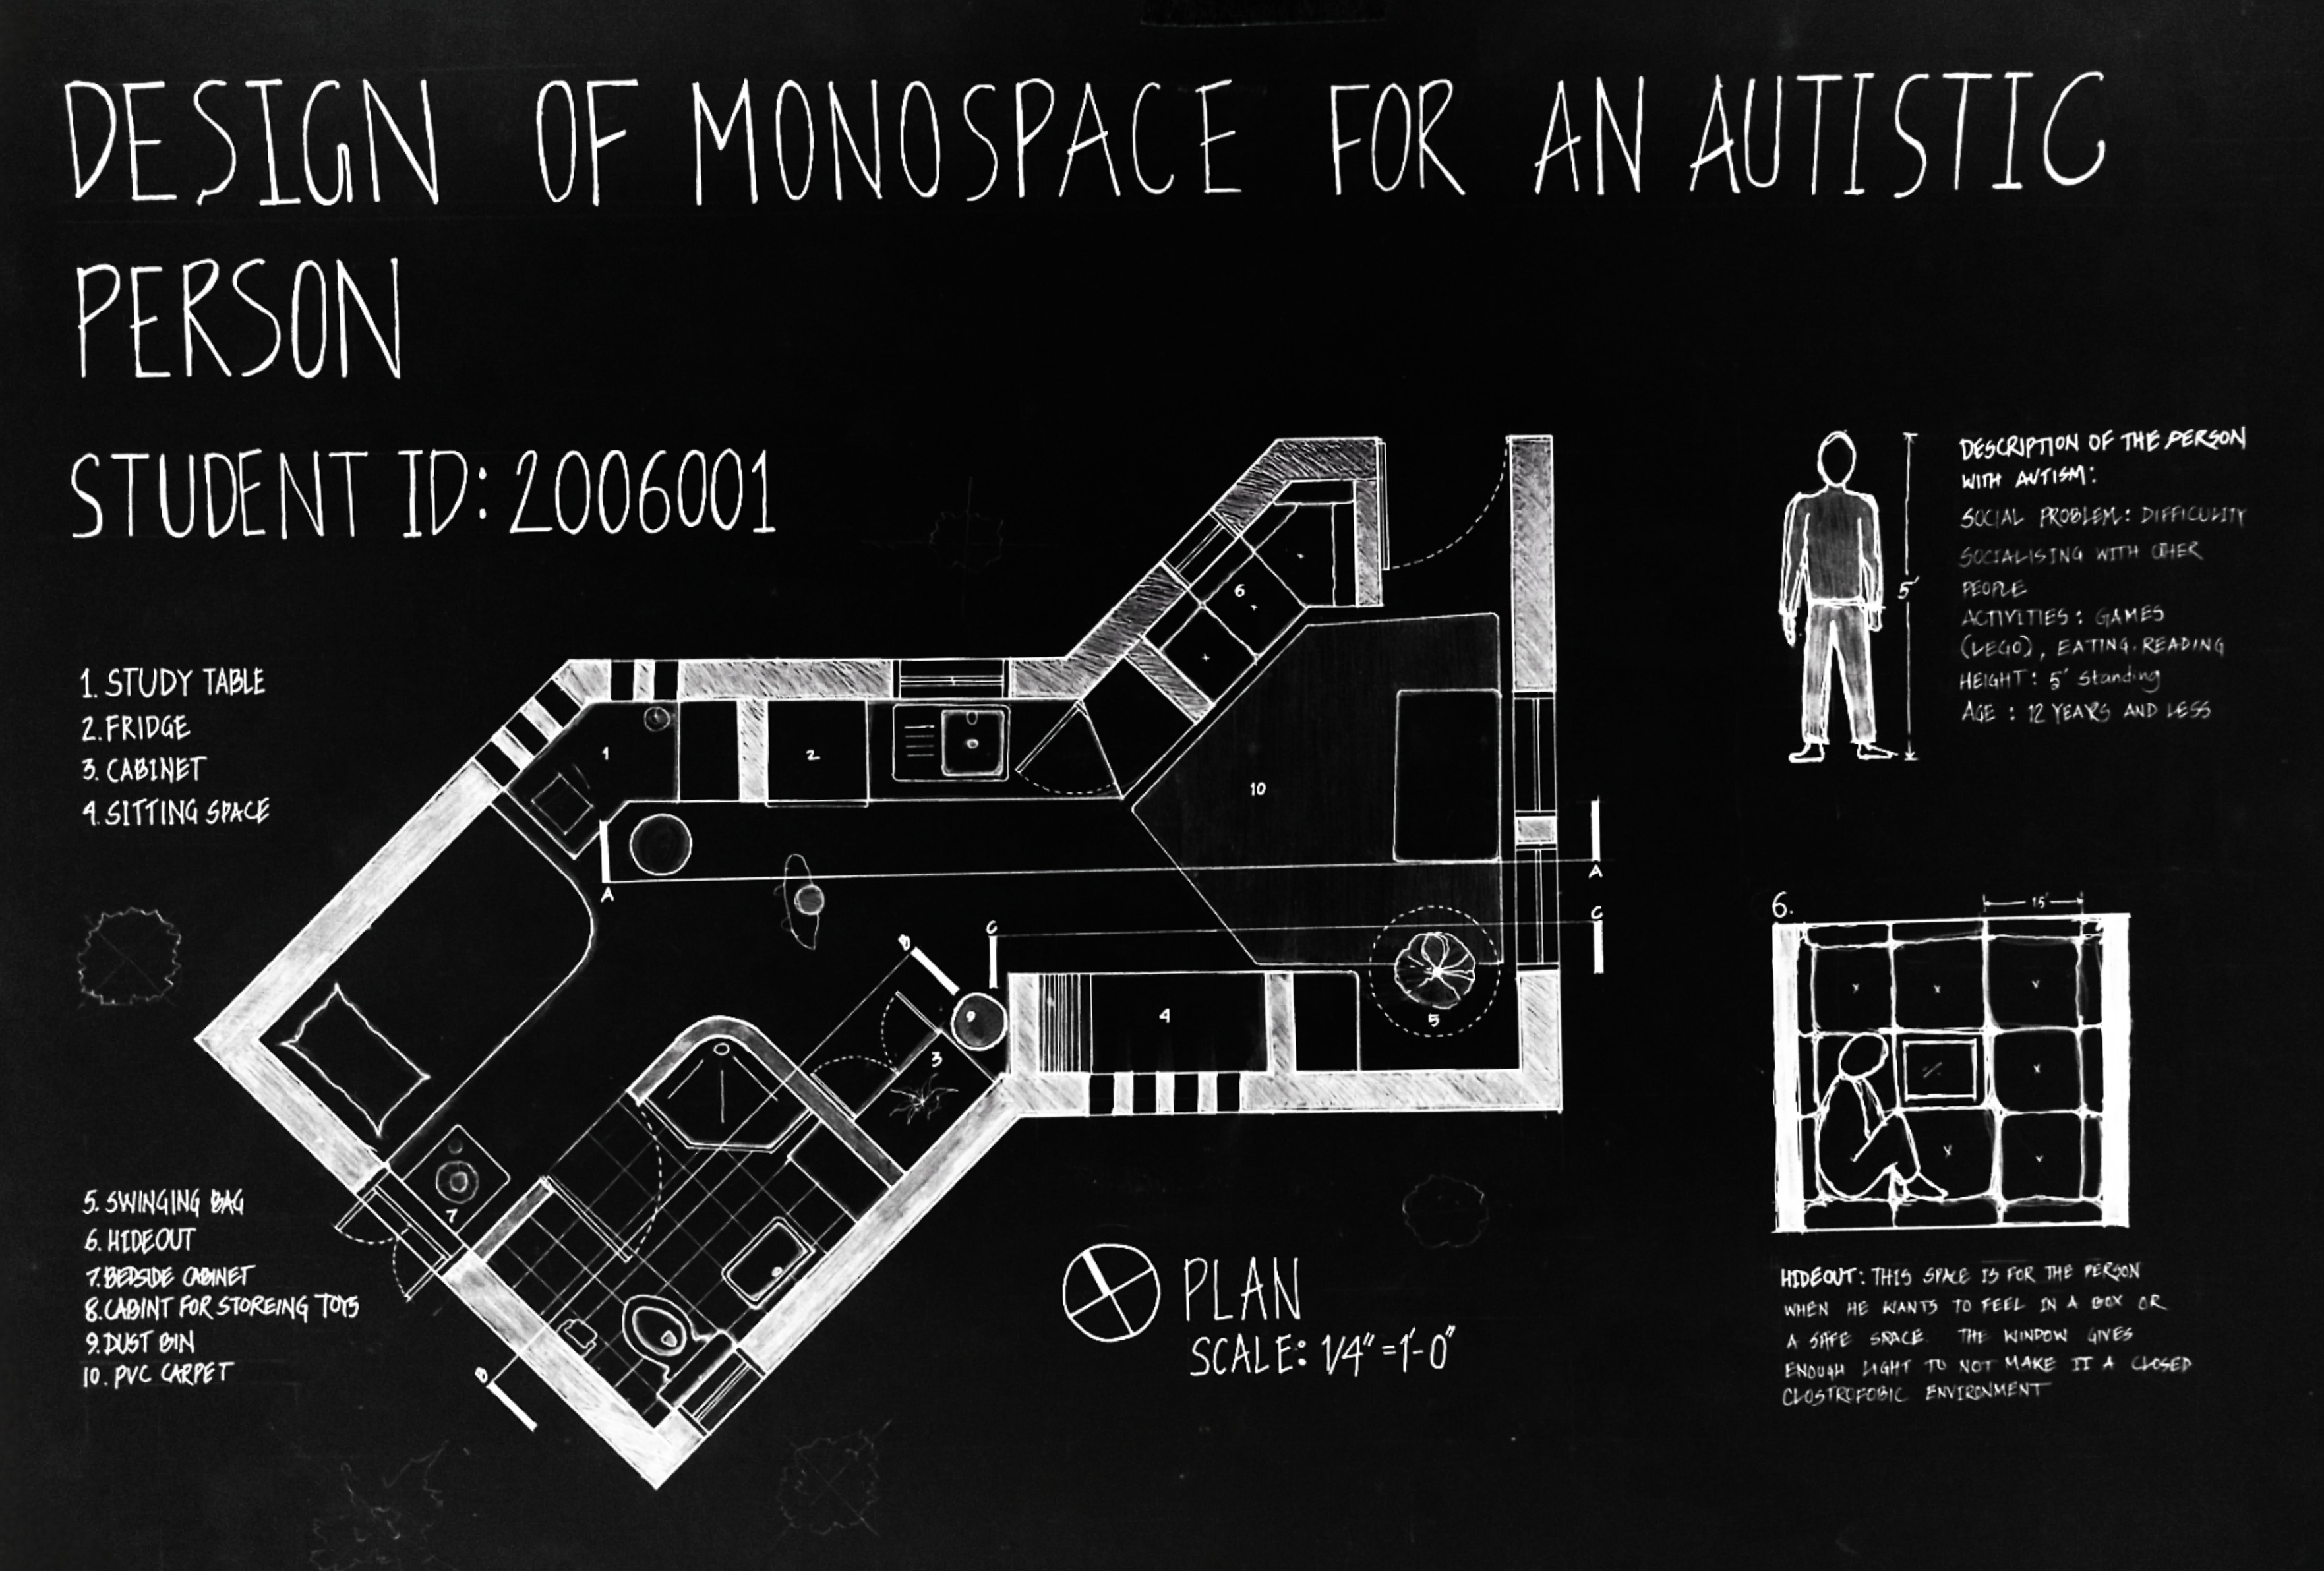 DESIGN OF MONOSPACE FOR AN AUTISTIC
PERSON
STUDENT ID: 2006001
1. STUDY TABLE
2. FRIDGE
3. CABINET
4. SITTING SPACE
5. SWINGING BAG
6. HIDEOUT
7. BEDSIDE CABINET
8. CABINT FOR STOREING TOYS
9. DUST BIN
10. PVC CARPET
1
2
6
10
A
A
C
C
B
9
3
4
5
7
B
PLAN
SCALE: 1/4" = 1'-0"
5'
DESCRIPTION OF THE PERSON
WITH AUTISM:
SOCIAL PROBLEM: DIFFICULITY
SOCIALISING WITH OTHER
PEOPLE
ACTIVITIES: GAMES
(LEGO), EATING, READING
HEIGHT: 5' Standing
AGE : 12 YEARS AND LESS
6.
15"
HIDEOUT: THIS SPACE IS FOR THE PERSON
WHEN HE WANTS TO FEEL IN A BOX OR
A SAFE SPACE. THE WINDOW GIVES
ENOUGH LIGHT TO NOT MAKE IT A CLOSED
CLOSTROFOBIC ENVIRONMENT